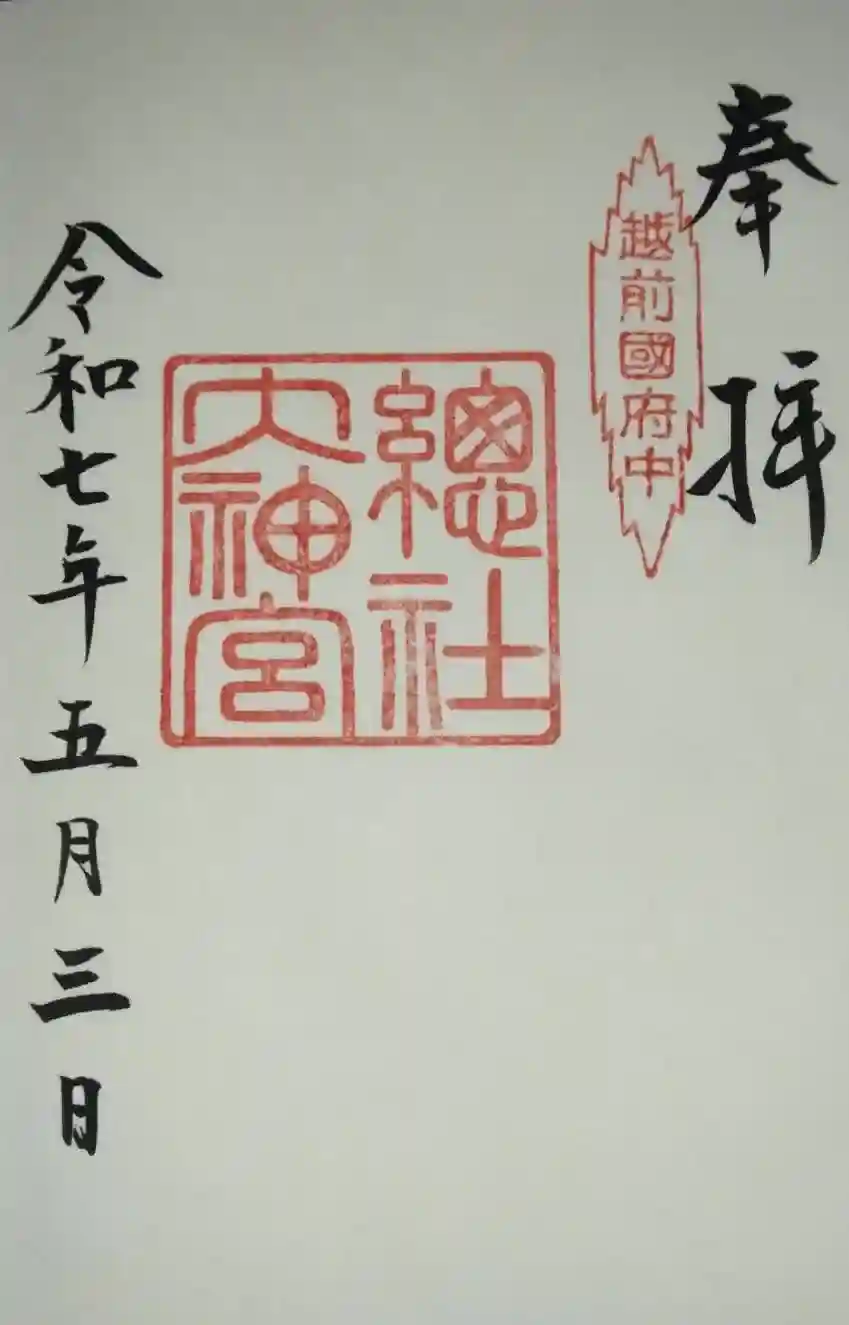 奉拝
越前國府中
總社
大神宮
令和七年五月三日